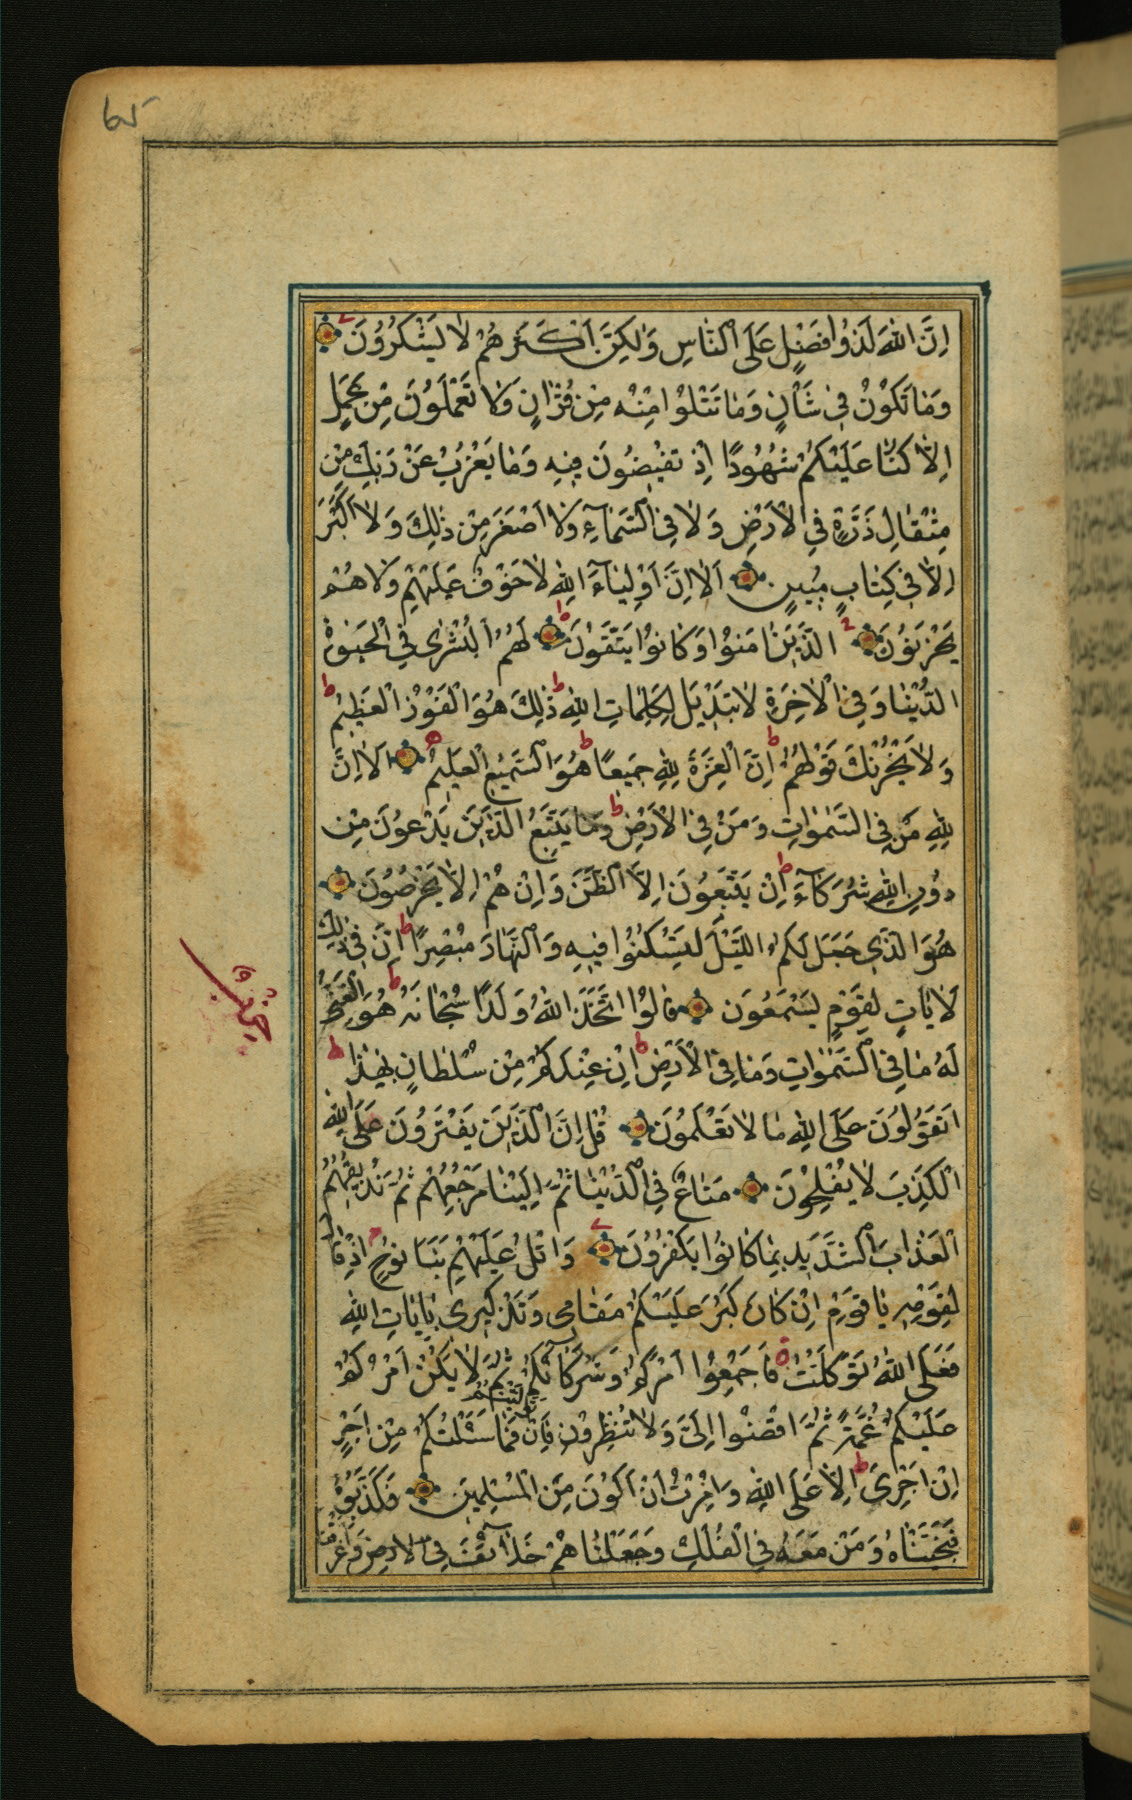 65
اِنَّ اللهَ لَذُوا فَضْلٍ عَلَى النَّاسِ وَلٰكِنَّ اَكْثَرَهُمْ لا يَشْكُرُونَ
وَمٰا تَكُوْنُ فِي شَأْنٍ وَمٰا تَتْلُوْا مِنْهُ مِنْ قُرْاٰنٍ وَلا تَعْمَلُونَ مِنْ عَمَلٍ
اِلّا كُنّا عَلَيْكُمْ شُهُودًا اِذْ تُفيضُونَ فيهِ وَمٰا يَعْزُبُ عَنْ رَبِّكَ مِنْ
مِثْقٰالِ ذَرَّةٍ فِي الْاَرْضِ وَلا فِي السَّمٰاءِ وَلا اَصْغَرَ مِنْ ذٰلِكَ وَلا اَكْبَرَ
اِلّا في كِتٰابٍ مُبينٍ اَلا اِنَّ اَوْلِيٰاءَ اللهِ لا خَوْفٌ عَلَيْهِمْ وَلا هُمْ
يَحْزَنُونَ اَلَّذينَ اٰمَنُوا وَكٰانُوا يَتَّقُونَ لَهُمُ الْبُشْرٰى فِي الْحَيٰوةِ
الدُّنْيٰا وَفِي الْاٰخِرَةِ لا تَبْديلَ لِكَلِمٰاتِ اللهِ ذٰلِكَ هُوَ الْفَوْزُ الْعَظيمُ
وَلا يَحْزُنْكَ قَوْلُهُمْ اِنَّ الْعِزَّةَ لِلّٰهِ جَميعًا هُوَ السَّميعُ الْعَليمُ اَلا اِنَّ
لِلّٰهِ مَنْ فِي السَّمٰوٰاتِ وَمَنْ فِي الْاَرْضِ وَمٰا يَتَّبِعُ الَّذينَ يَدْعُونَ مِنْ
دُونِ اللهِ شُرَكٰاءَ اِنْ يَتَّبِعُونَ اِلَّا الظَّنَّ وَاِنْ هُمْ اِلّا يَخْرُصُونَ
هُوَ الَّذي جَعَلَ لَكُمُ اللَّيْلَ لِتَسْكُنُوا فيهِ وَالنَّهٰارَ مُبْصِرًا اِنَّ في ذٰلِكَ
لَاٰيٰاتٍ لِقَوْمٍ يَسْمَعُونَ قٰالُوا اتَّخَذَ اللهُ وَلَدًا سُبْحٰانَهُ هُوَ الْغَنِيُّ
لَهُ مٰا فِي السَّمٰوٰاتِ وَمٰا فِي الْاَرْضِ اِنْ عِنْدَكُمْ مِنْ سُلْطٰانٍ بِهٰذٰا
اَتَقُولُونَ عَلَى اللهِ مٰا لا تَعْلَمُونَ قُلْ اِنَّ الَّذينَ يَفْتَرُونَ عَلَى اللهِ
الْكَذِبَ لا يُفْلِحُونَ مَتٰاعٌ فِي الدُّنْيٰا ثُمَّ اِلَيْنٰا مَرْجِعُهُمْ ثُمَّ نُذيقُهُمُ
الْعَذٰابَ الشَّديدَ بِمٰا كٰانُوا يَكْفُرُونَ وَاتْلُ عَلَيْهِمْ نَبَاَ نُوحٍ اِذْ قٰالَ
لِقَوْمِهِ يٰا قَوْمِ اِنْ كٰانَ كَبُرَ عَلَيْكُمْ مَقٰامي وَتَذْكيري بِاٰيٰاتِ اللهِ
فَعَلَى اللهِ تَوَكَّلْتُ فَاَجْمِعُوا اَمْرَكُمْ وَشُرَكٰاءَكُمْ ثُمَّ لا يَكُنْ اَمْرُكُمْ
عَلَيْكُمْ غُمَّةً ثُمَّ اقْضُوا اِلَيَّ وَلا تُنْظِرُونِ فَاِنْ تَوَلَّيْتُمْ فَمٰا سَئَلْتُكُمْ مِنْ اَجْرٍ
اِنْ اَجْرِيَ اِلّا عَلَى اللهِ وَاُمِرْتُ اَنْ اَكُونَ مِنَ الْمُسْلِمينَ فَكَذَّبُوهُ
فَنَجَّيْنٰاهُ وَمَنْ مَعَهُ فِي الْفُلْكِ وَجَعَلْنٰاهُمْ خَلٰائِفَ فِي الْارضِ وَاَغْرَقْنَا
حزب